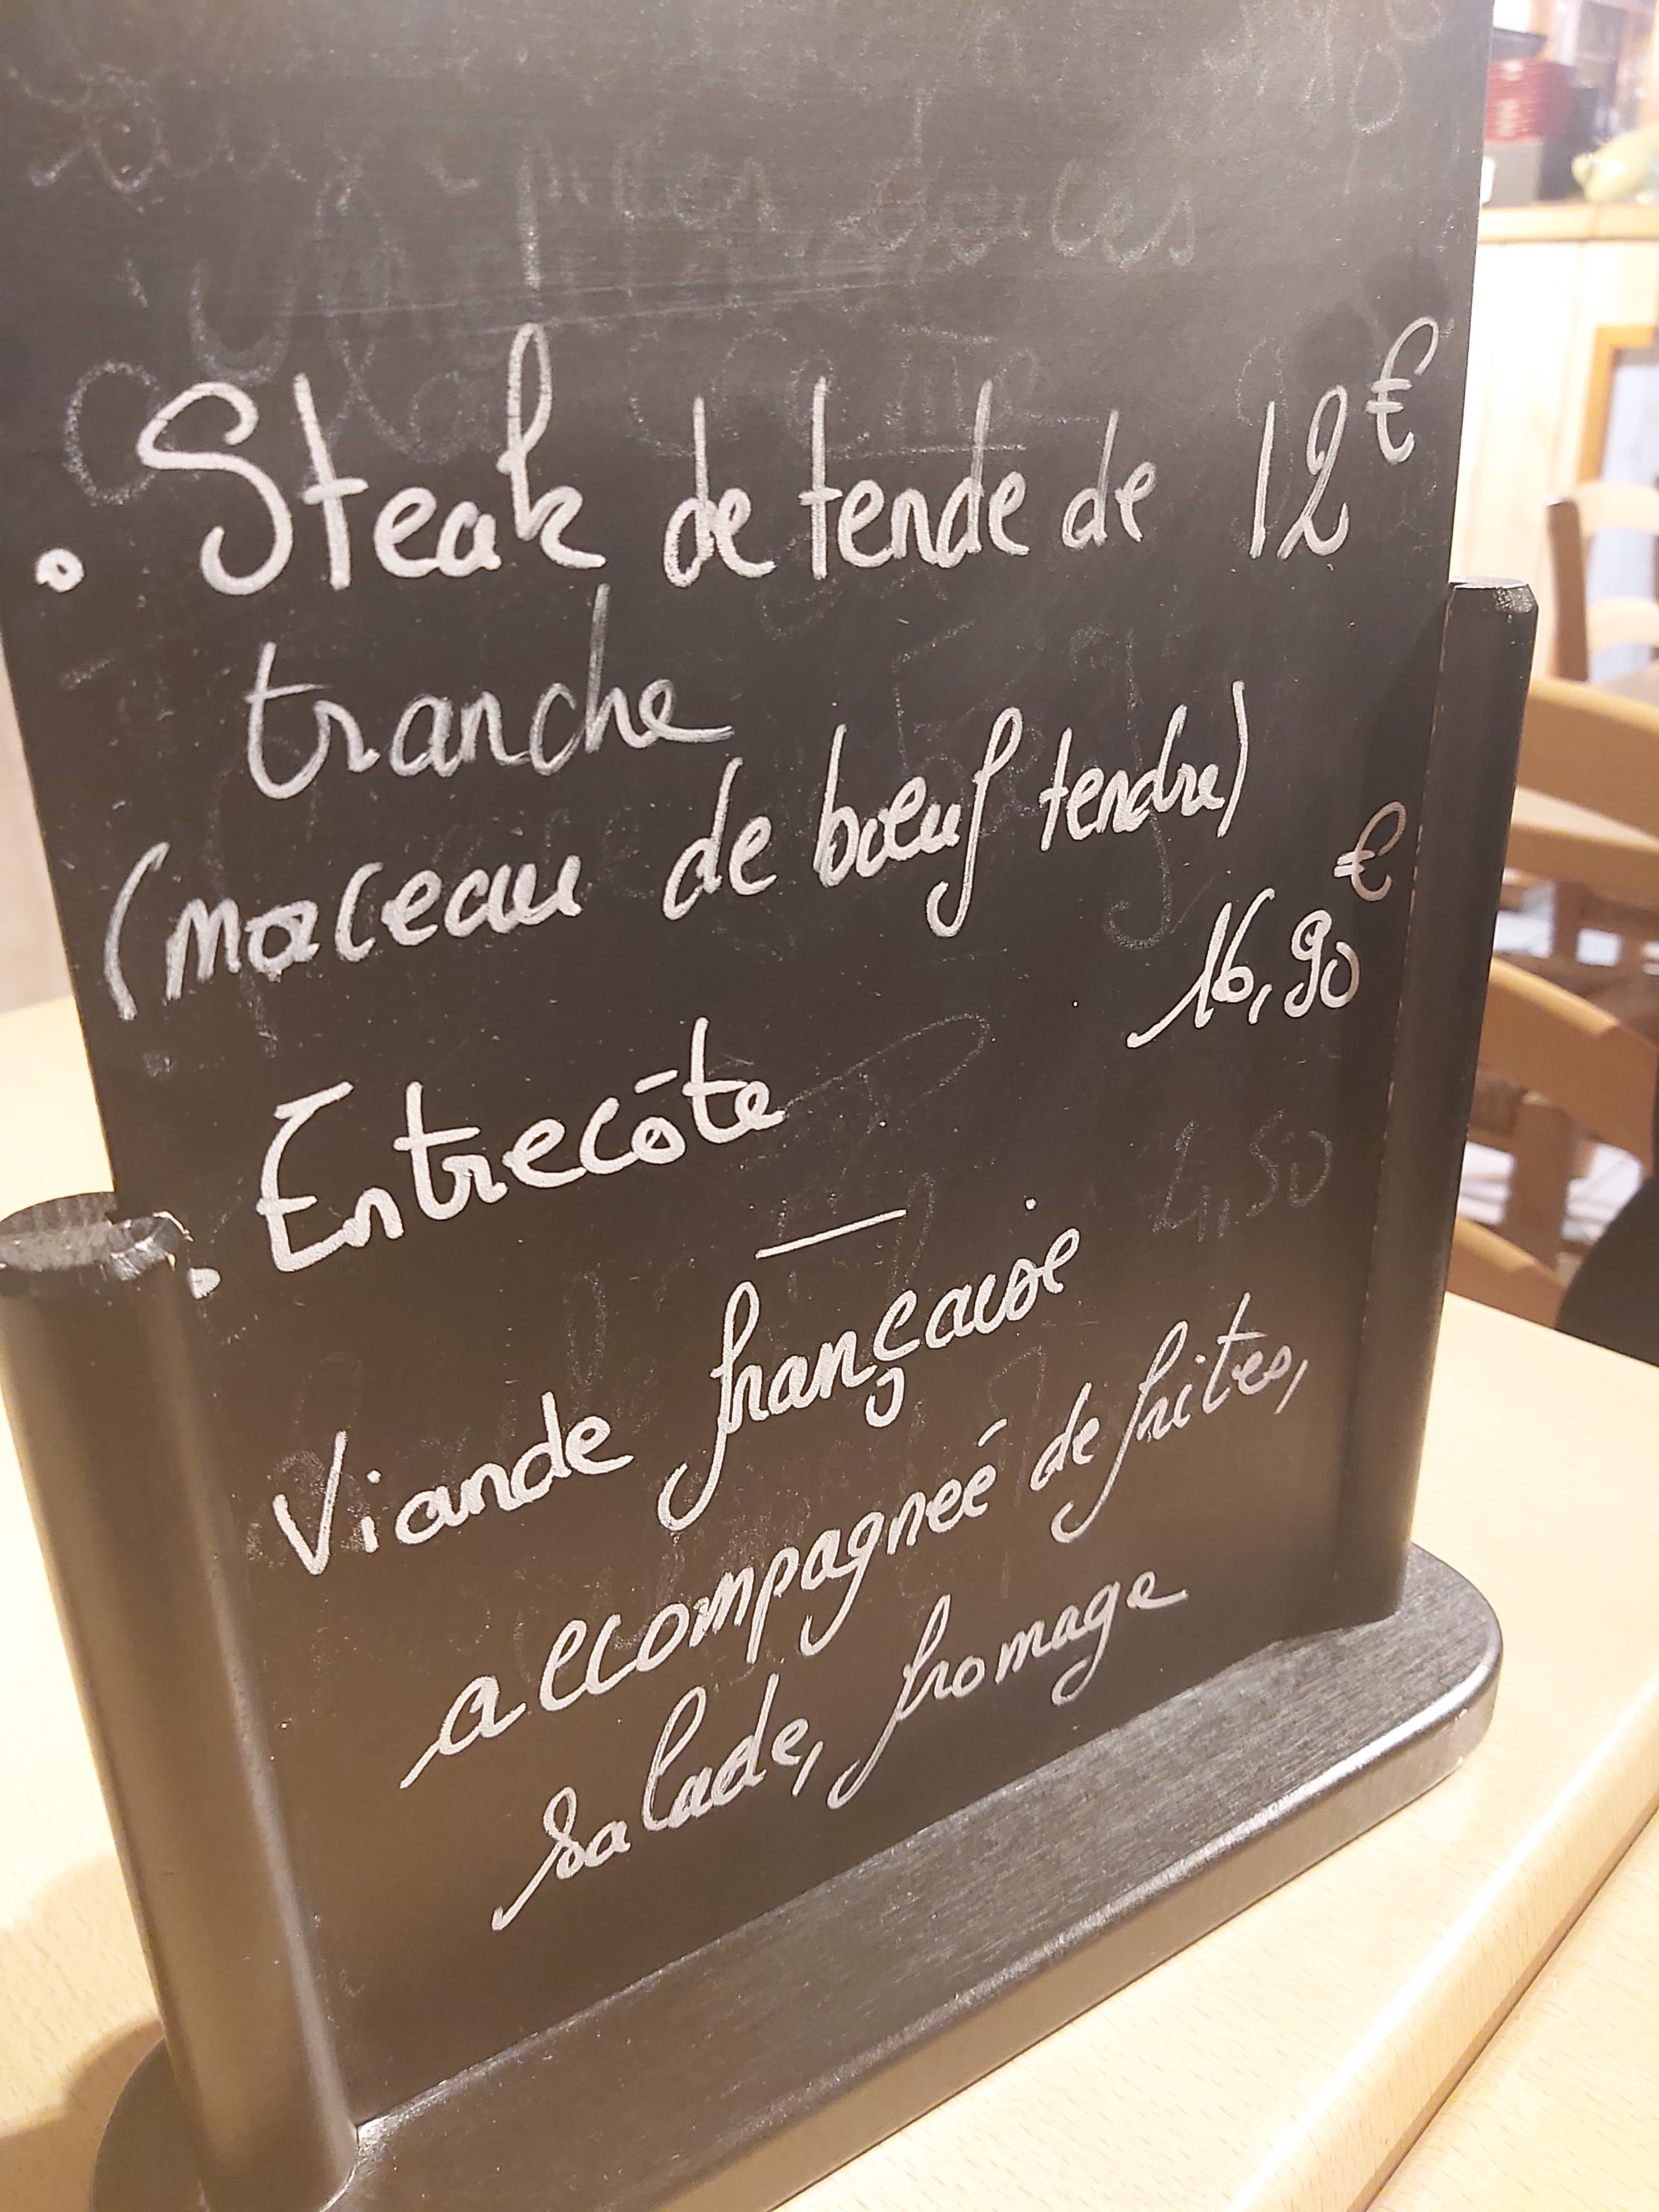 . Steak de tende de 12€
tranche
(morceau de bœuf tendre)
16,90€
. Entrecôte
—
Viande française
accompagneé de frites,
salade, fromage